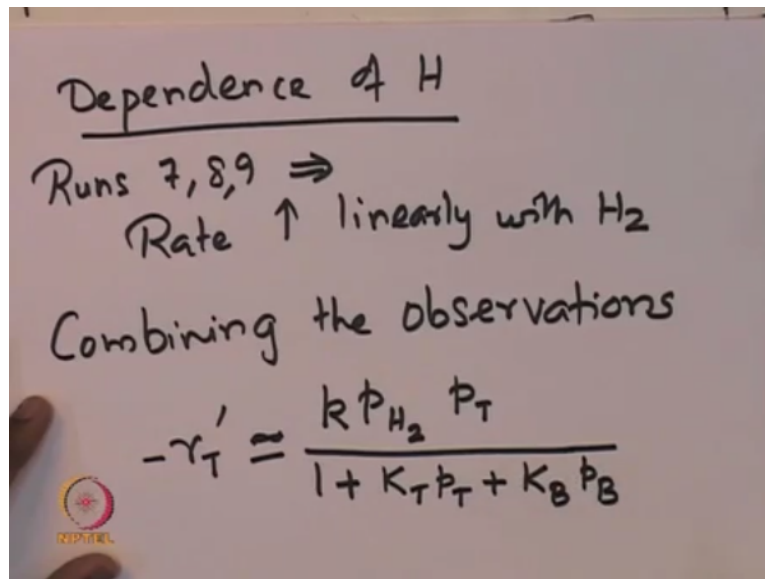 Dependence of H
Runs 7,8,9 ⇒
Rate ↑ linearly with H₂
Combining the observations
-r_T' ≃ k p_H₂ p_T / (1 + K_T p_T + K_B p_B)
NPTEL